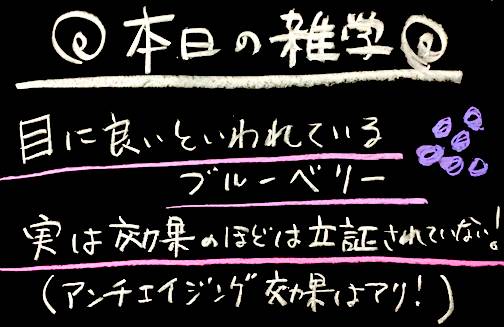 本日の雑学
目に良いといわれている
ブルーベリー
実は効果のほどは立証されていない!
(アンチエイジング効果はアリ!)